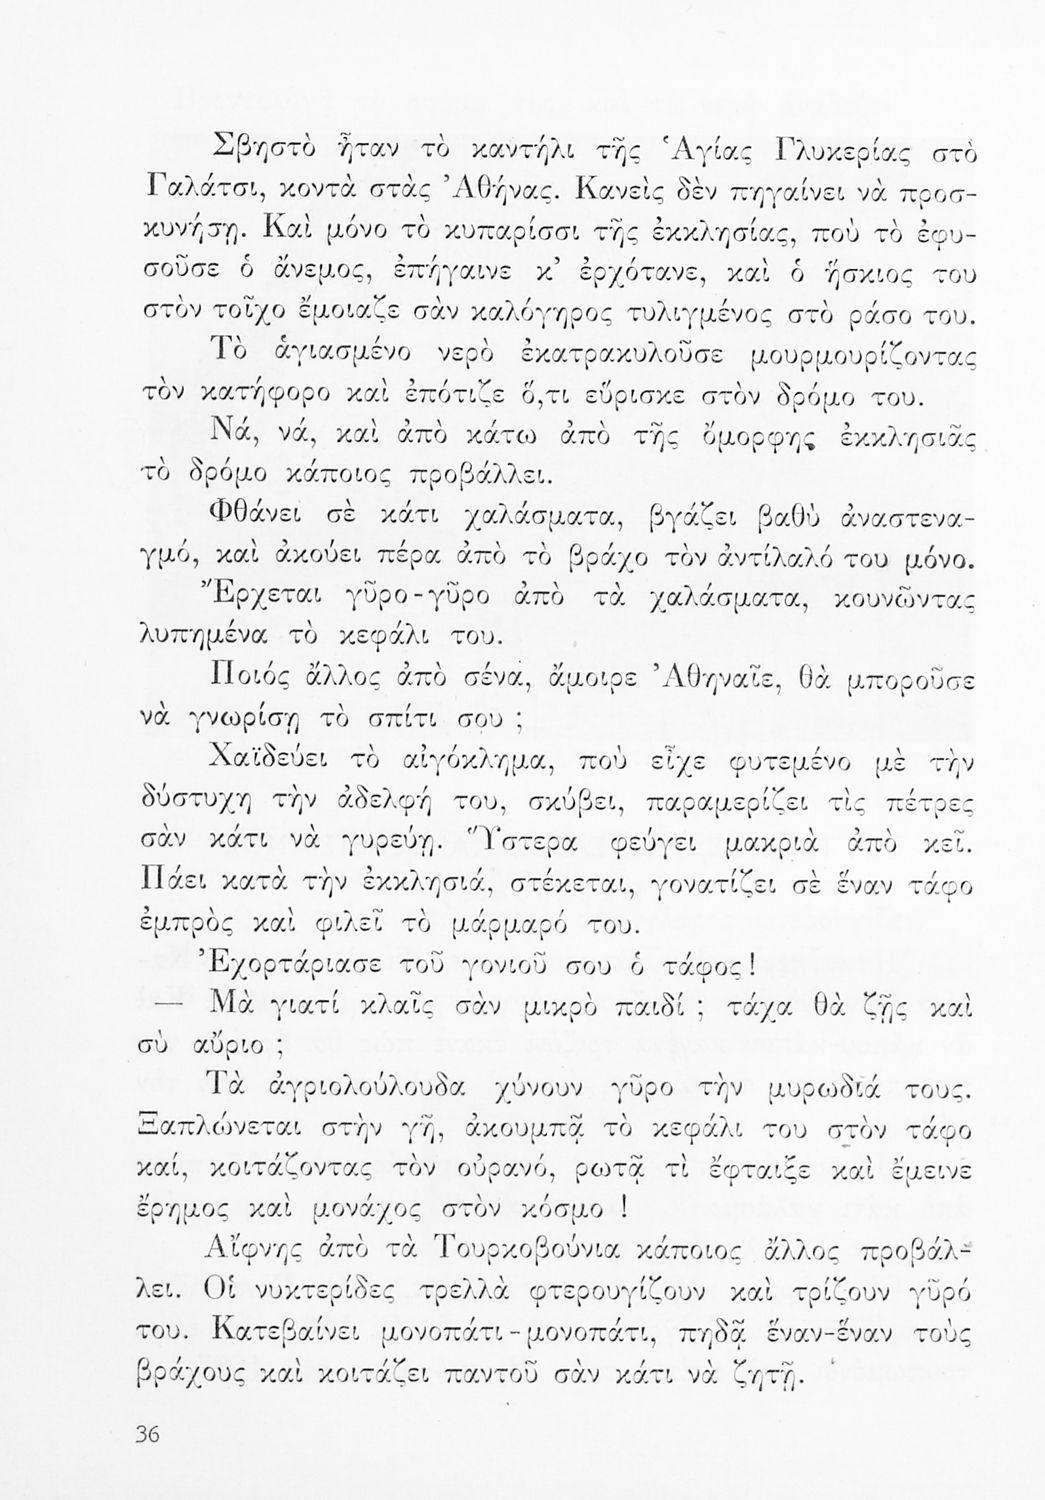 Σβηστὸ ἦταν τὸ καντήλι τῆς Ἁγίας Γλυκερίας στὸ
Γαλάτσι, κοντὰ στὰς Ἀθήνας. Κανεὶς δὲν πηγαίνει νὰ προσ-
κυνήσῃ. Καὶ μόνο τὸ κυπαρίσσι τῆς ἐκκλησίας, ποὺ τὸ ἐφυ-
σοῦσε ὁ ἄνεμος, ἐπήγαινε κ’ ἐρχότανε, καὶ ὁ ἥσκιος του
στὸν τοῖχο ἔμοιαζε σὰν καλόγηρος τυλιγμένος στὸ ράσο του.
Τὸ ἁγιασμένο νερὸ ἐκατρακυλοῦσε μουρμουρίζοντας
τὸν κατήφορο καὶ ἐπότιζε ὅ,τι εὕρισκε στὸν δρόμο του.
Νά, νά, καὶ ἀπὸ κάτω ἀπὸ τῆς ὄμορφης ἐκκλησιᾶς
τὸ δρόμο κάποιος προβάλλει.
Φθάνει σὲ κάτι χαλάσματα, βγάζει βαθὺ ἀναστενα-
γμό, καὶ ἀκούει πέρα ἀπὸ τὸ βράχο τὸν ἀντίλαλό του μόνο.
Ἔρχεται γῦρο-γῦρο ἀπὸ τὰ χαλάσματα, κουνῶντας
λυπημένα τὸ κεφάλι του.
Ποιός ἄλλος ἀπὸ σένα, ἄμοιρε Ἀθηναῖε, θὰ μποροῦσε
νὰ γνωρίσῃ τὸ σπίτι σου ;
Χαϊδεύει τὸ αἰγόκλημα, ποὺ εἶχε φυτεμένο μὲ τὴν
δύστυχη τὴν ἀδελφή του, σκύβει, παραμερίζει τὶς πέτρες
σὰν κάτι νὰ γυρεύῃ. Ὕστερα φεύγει μακριὰ ἀπὸ κεῖ.
Πάει κατὰ τὴν ἐκκλησιά, στέκεται, γονατίζει σὲ ἕναν τάφο
ἐμπρὸς καὶ φιλεῖ τὸ μάρμαρό του.
Ἐχορτάριασε τοῦ γονιοῦ σου ὁ τάφος!
— Μὰ γιατί κλαῖς σὰν μικρὸ παιδί ; τάχα θὰ ζῇς καὶ
σὺ αὔριο ;
Τὰ ἀγριολούλουδα χύνουν γῦρο τὴν μυρωδιά τους.
Ξαπλώνεται στὴν γῆ, ἀκουμπᾷ τὸ κεφάλι του στὸν τάφο
καί, κοιτάζοντας τὸν οὐρανό, ρωτᾷ τὶ ἔφταιξε καὶ ἔμεινε
ἔρημος καὶ μονάχος στὸν κόσμο !
Αἴφνης ἀπὸ τὰ Τουρκοβούνια κάποιος ἄλλος προβάλ-
λει. Οἱ νυκτερίδες τρελλὰ φτερουγίζουν καὶ τρίζουν γῦρό
του. Κατεβαίνει μονοπάτι-μονοπάτι, πηδᾷ ἕναν-ἕναν τοὺς
βράχους καὶ κοιτάζει παντοῦ σὰν κάτι νὰ ζητῇ.
36